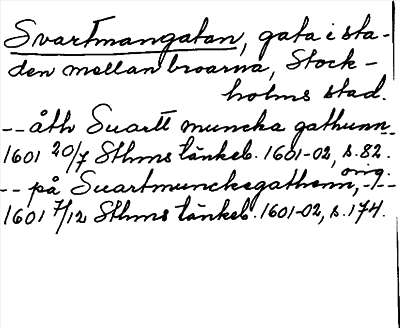 Svartmangatan, gata i sta-
den mellan broarna, Stock-
holms stad.
-- åth Suartt muncka gathunn --
1601 20/7 Sthms tänkeb. 1601-02, s. 82.
orig.
-- på Suartmunckegathenn, -1--
1601 7/12 Sthms tänkeb. 1601-02, s. 174.